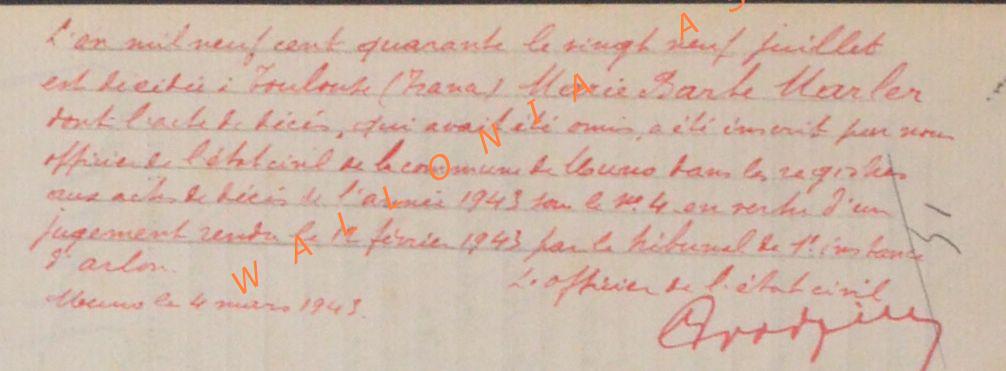 L'an mil neuf cent quarante le vingt neuf juillet
est décédée à Toulouse (France) Marie Barbe Marler
dont l'acte de décès, qui avait été omis, a été inscrit par nous
officier de l'état civil de la commune de Muno dans les registres
aux actes de décès de l'année 1943 sous le no. 4 en vertu d'un
jugement rendu le février 1943 par le tribunal de 1e instance
d'arlon.
L'officier de l'état civil
Muno le 4 mars 1943.
51
WALLONIA AS